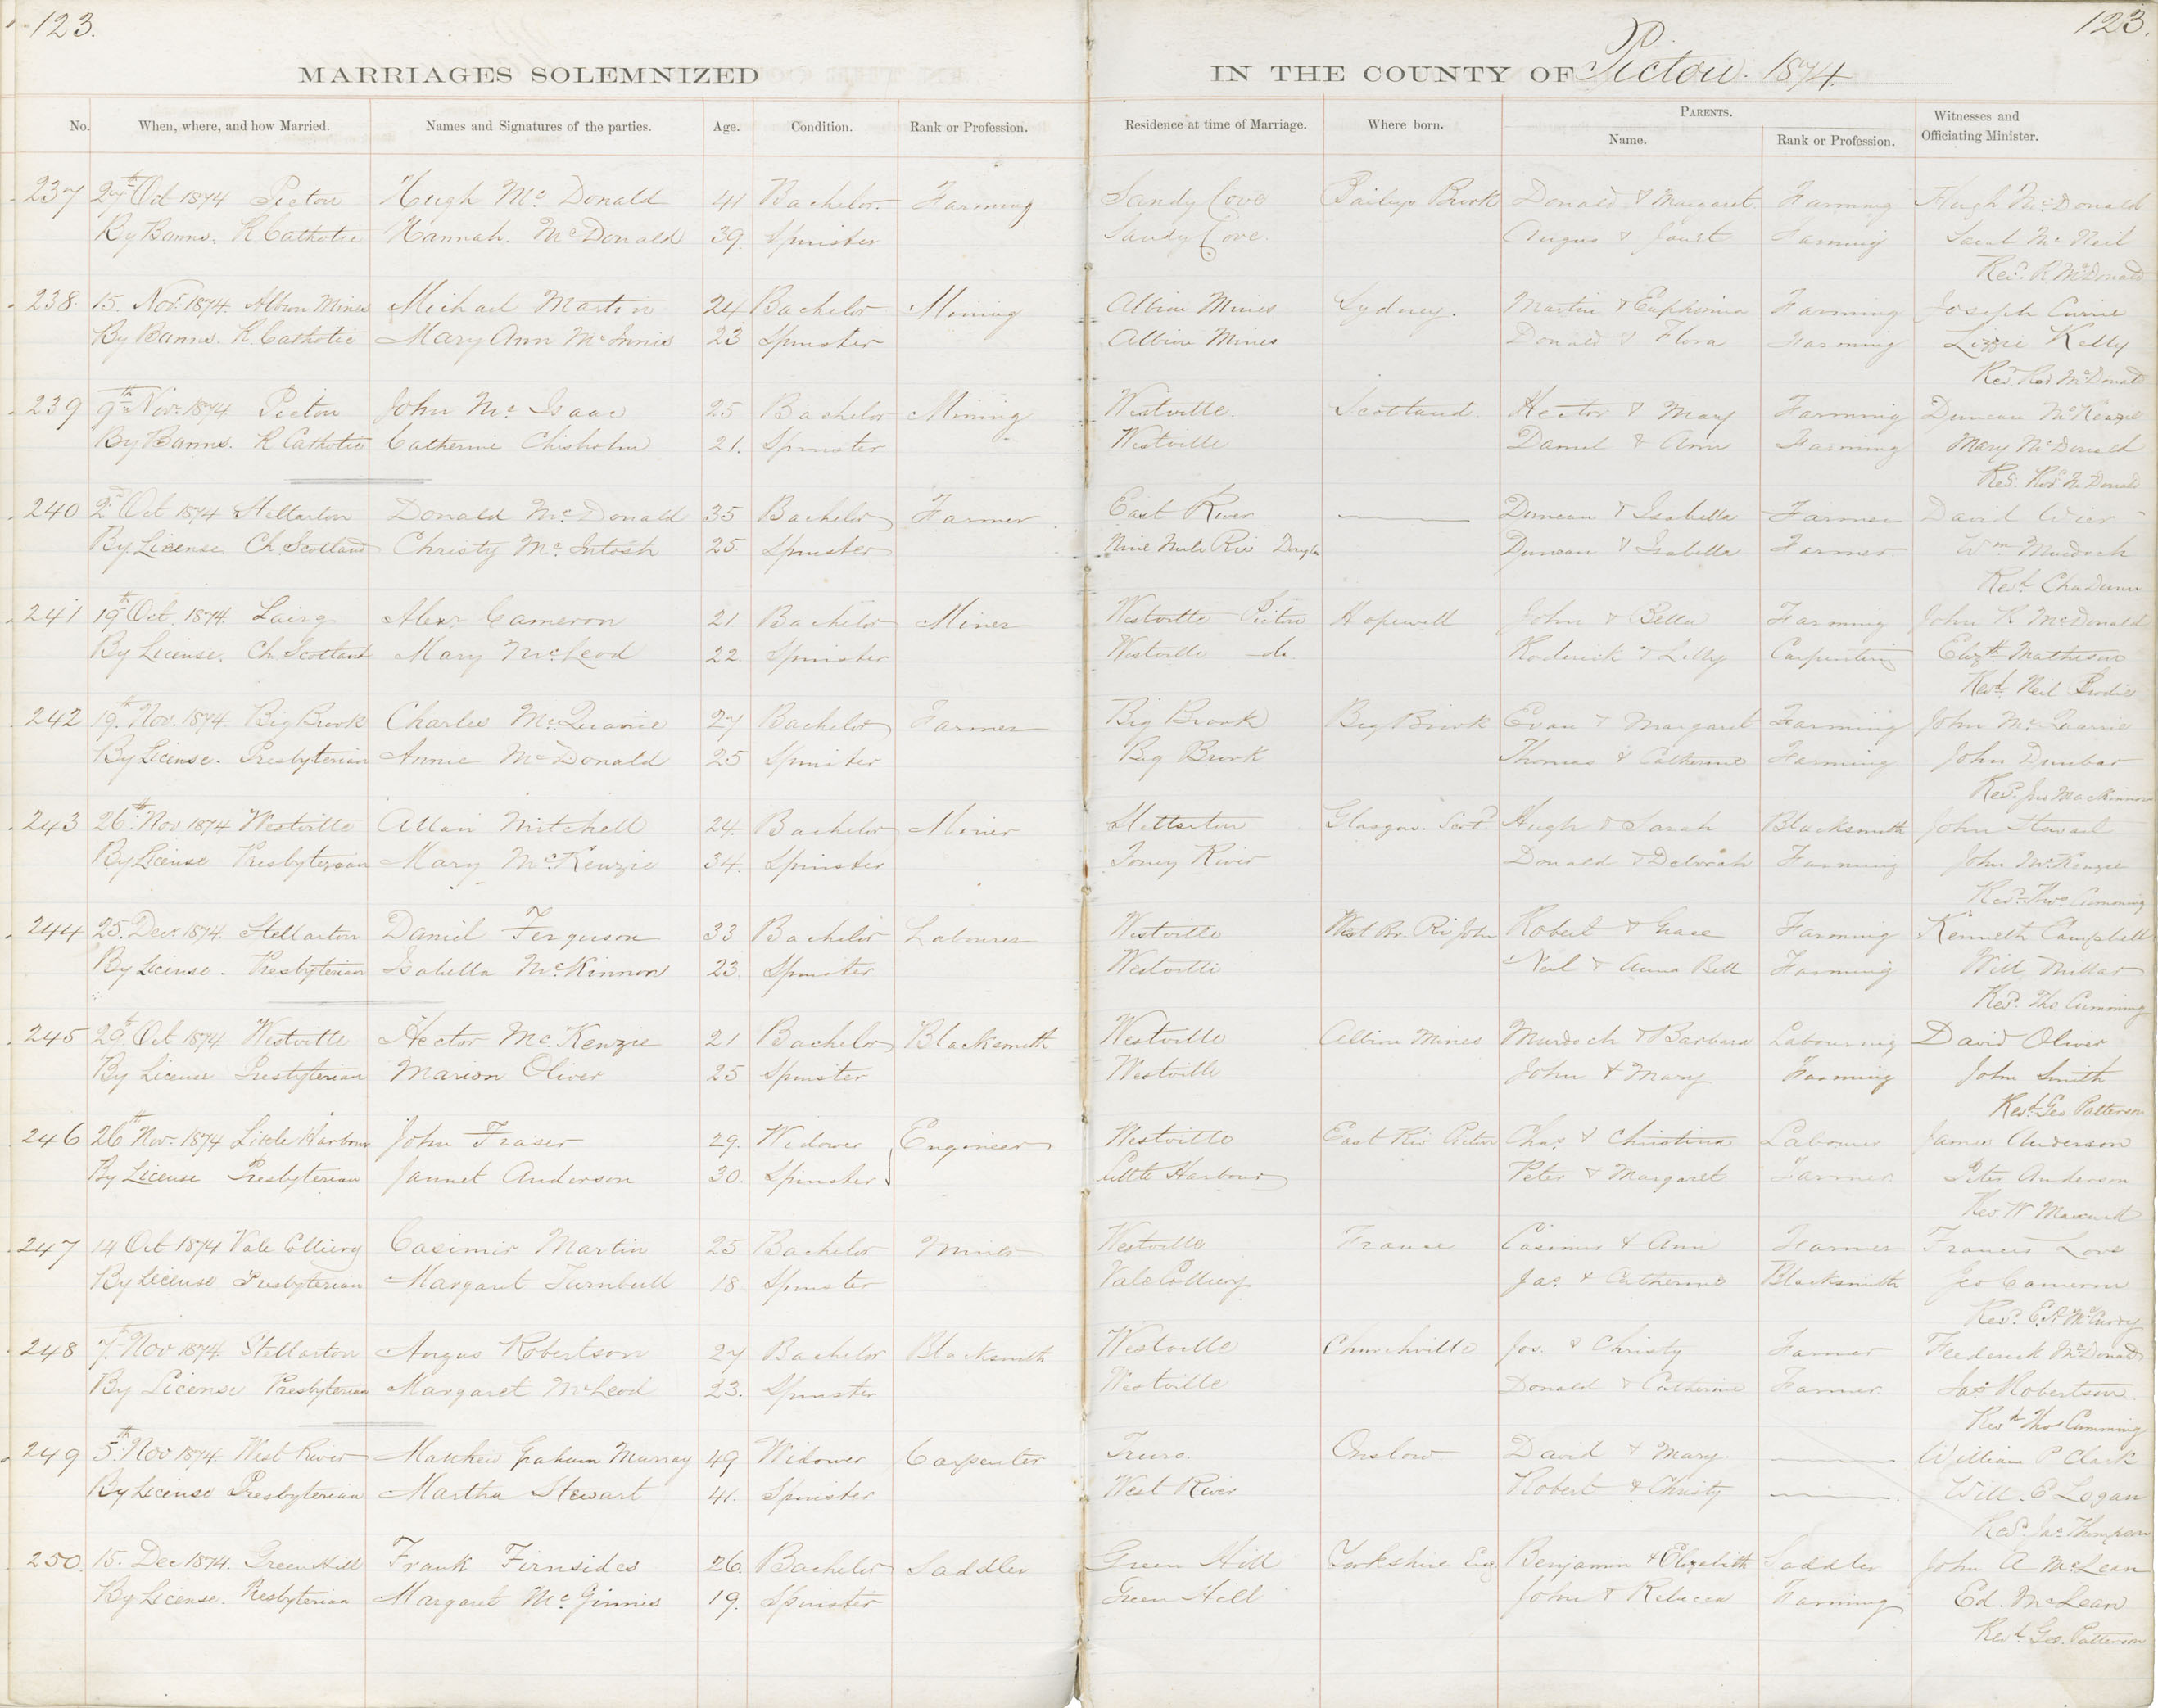 123.
123.
MARRIAGES SOLEMNIZED IN THE COUNTY OF Pictou. 1874.
No. When, where, and how Married. Names and Signatures of the parties. Age. Condition. Rank or Profession. Residence at time of Marriage. Where born. PARENTS. Witnesses and
Name. Rank or Profession. Officiating Minister.
237 27th Oct 1874 Pictou Hugh Mc Donald 41 Bachelor Farming Sandy Cove Baileys Brook Donald & Margaret Farming Hugh McDonald
By Banns. R Catholic Hannah McDonald 39. Spinster Sandy Cove. Angus & Janet Farming Sarah Mc Neil
Revd. R McDonald
238. 15. Nov. 1874. Albion Mines Michael Martin 24 Bachelor Mining Albion Mines Sydney. Martin & Euphemia Farming Joseph Currie
By Banns. R. Catholic Mary Ann McInnis 23 Spinster Albion Mines Donald & Flora Farming Lizzie Kelly
Revd. Rod McDonald
239 9th Nov. 1874 Pictou John Mc Isaac 25 Bachelor Mining Westville. Scotland. Hector & Mary Farming Duncan McKenzie
By Banns. R Catholic Catherine Chisholm 21. Spinster Westville Daniel & Ann Farming Mary McDonald
Revd. Rod McDonald
240 2d Oct 1874 Stellarton Donald McDonald 35 Bachelor Farmer East River Duncan & Isabella Farmer David Wier
By License Ch. Scotland Christy Mc Intosh 25. Spinster Nine Mile Riv Duncan & Isabella Farmer. Wm Murdoch
Revd. Cha Dunn
241 19th Oct. 1874 Lairg Alexr Cameron 21. Bachelor Miner Westville Pictou Hopewell John & Bella Farming John R McDonald
By License. Ch. Scotland Mary McLeod 22. Spinster Westville do. Roderick & Lilly Carpentering Elizth Matheson
Revd. Neil Brodie
242 19th Nov. 1874. Big Brook Charles McQuarrie 27 Bachelor Farmer Big Brook Big Brook Evan & Margaret Farming John McQuarrie
By License. Presbyterian Annie McDonald 25 Spinster Big Brook Thomas & Catherine Farming John Dunbar
Revd. Jno MacKinnon
243 26th Nov 1874 Westville Allan Mitchell 24. Bachelor Miner Stellarton Glasgow. Scotd Hugh & Sarah Blacksmith John Stewart
By License Presbyterian Mary McKenzie 34. Spinster Toney River Donald & Deborah Farming John McKenzie
Revd. Thos Cumming
244 25. Decr 1874. Stellarton Daniel Ferguson 33 Bachelor Labourer Westville West Br. Ri John Robert & Grace Farming Kenneth Campbell
By License. Presbyterian Isabella McKinnon 23. Spinster Westville Neil & Anna Bell Farming Will Millar
Revd. Tho Cumming
245 29th Oct 1874 Westville Hector McKenzie 21 Bachelor Blacksmith Westville Albion Mines Murdoch & Barbara Labouring David Oliver
By License Presbyterian Marion Oliver 25 Spinster Westville John & Mary Farming John Smith
Revd. Geo Patterson
246 26th Nov. 1874 Little Harbour John Fraser 29. Widower Engineer Westville East Riv Pictou Chas & Christina Labourer James Anderson
By License Presbyterian Jannet Anderson 30. Spinster Little Harbour Peter & Margaret Farmer Peter Anderson
Rev. W Maxwell
247 14 Oct 1874 Vale Colliery Casimir Martin 25 Bachelor Miner Westville France Casimir & Ann Farmer Francis Love
By License Presbyterian Margaret Turnbull 18. Spinster Vale Colliery Jas & Catherine Blacksmith Geo Cameron
Revd. E.A. McCurdy
248 7th Nov 1874 Stellarton Angus Robertson 27 Bachelor Blacksmith Westville Churchville Jos. & Christy Farmer Frederick McDonald
By License Presbyterian Margaret McLeod 23. Spinster Westville Donald & Catherine Farmer. Jas Robertson
Revd. Thos Cumming
249 5th Nov 1874. West River Matthew Graham Murray 49 Widower Carpenter Truro. Onslow. David & Mary. William P Clark
By License Presbyterian Martha Stewart 41. Spinster West River Robert & Christy Will. E Logan
Revd. Jas Thompson
250. 15. Dec 1874. Green Hill Frank Firnsides 26. Bachelor Saddler Green Hill Yorkshire Eng Benjamin & Elizabeth Saddler John A McLean
By License. Presbyterian Margaret McGinnis 19. Spinster Green Hill John & Rebecca Farming Ed. McLean
Revd. Geo. Patterson